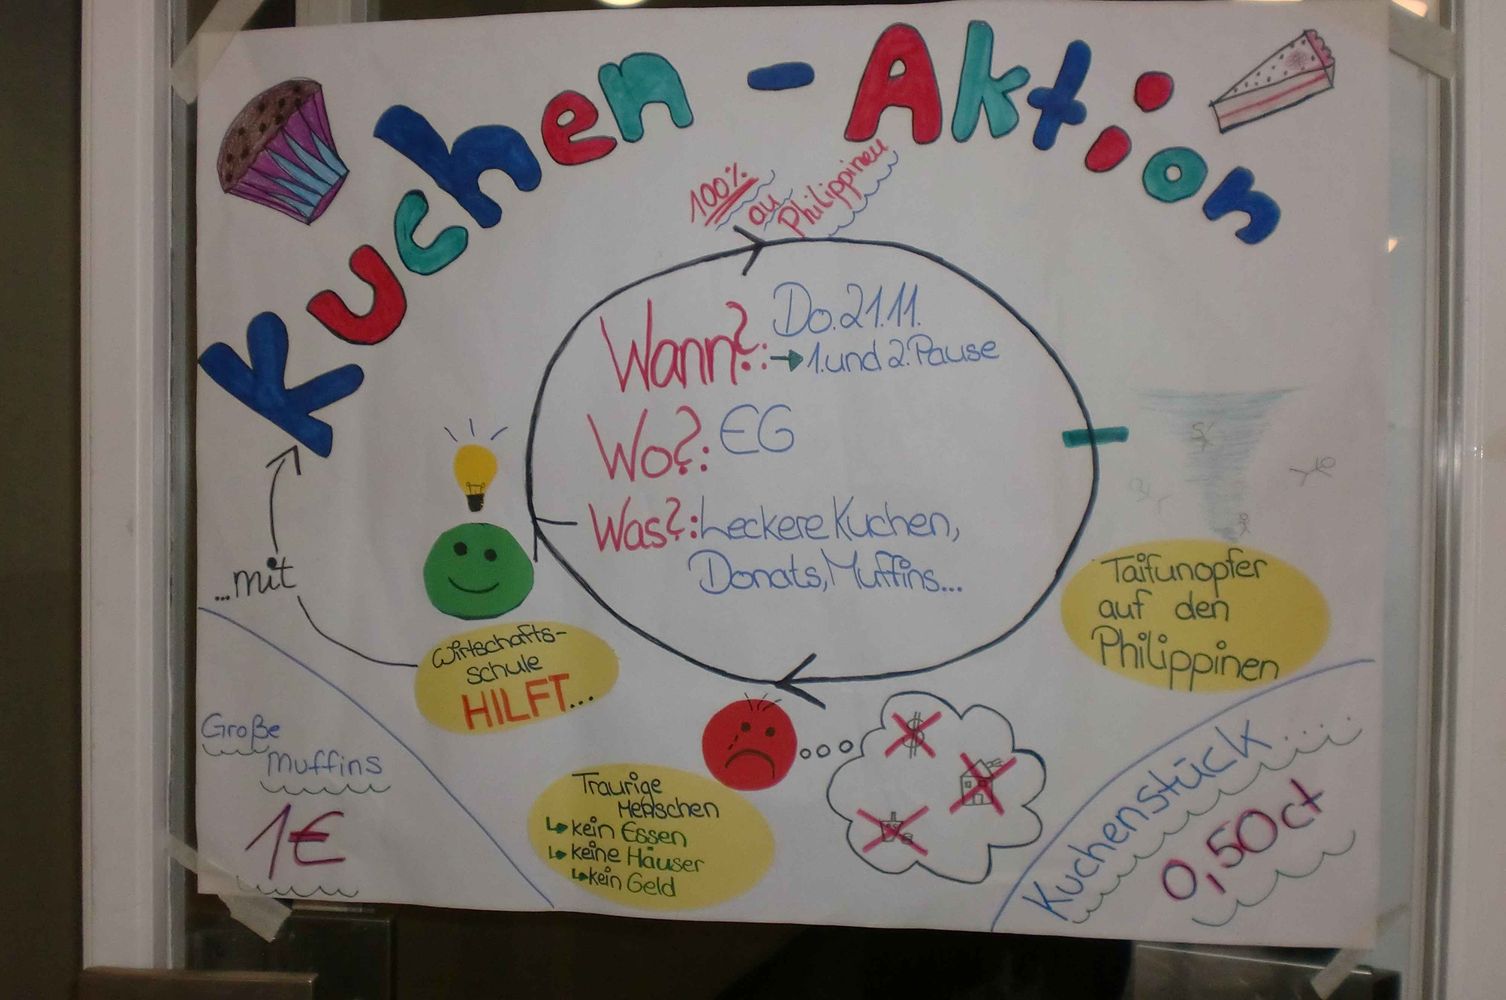 Kuchen - Aktion
100%
au
Philippinen
Wann?: Do. 21.11.
1. und 2. Pause
Wo?: EG
Was?: Leckere Kuchen,
Donats, Muffins...
Taifunopfer
auf den
Philippinen
Traurige
Menschen
kein Essen
keine Häuser
kein Geld
$
Wirtschafts-
schule
HILFT...
...mit
Große
Muffins
1€
Kuchenstück....
0,50ct